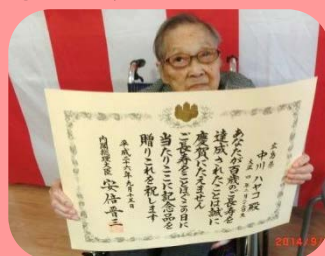 広島県
中川 ハヤコ 殿
あなたが百歳のご長寿を
達成されたことは誠に
慶賀にたえません
ご長寿をことほぐこの日に
当たりここに記念品を
贈りこれを祝します
平成二十六年九月十五日
内閣総理大臣 安倍晋三
2014/9/